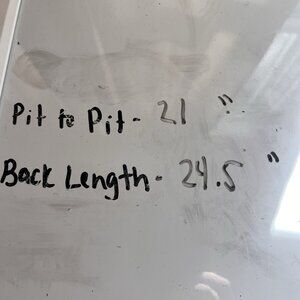 Pit to Pit - 21 "
Back Length - 24.5 "